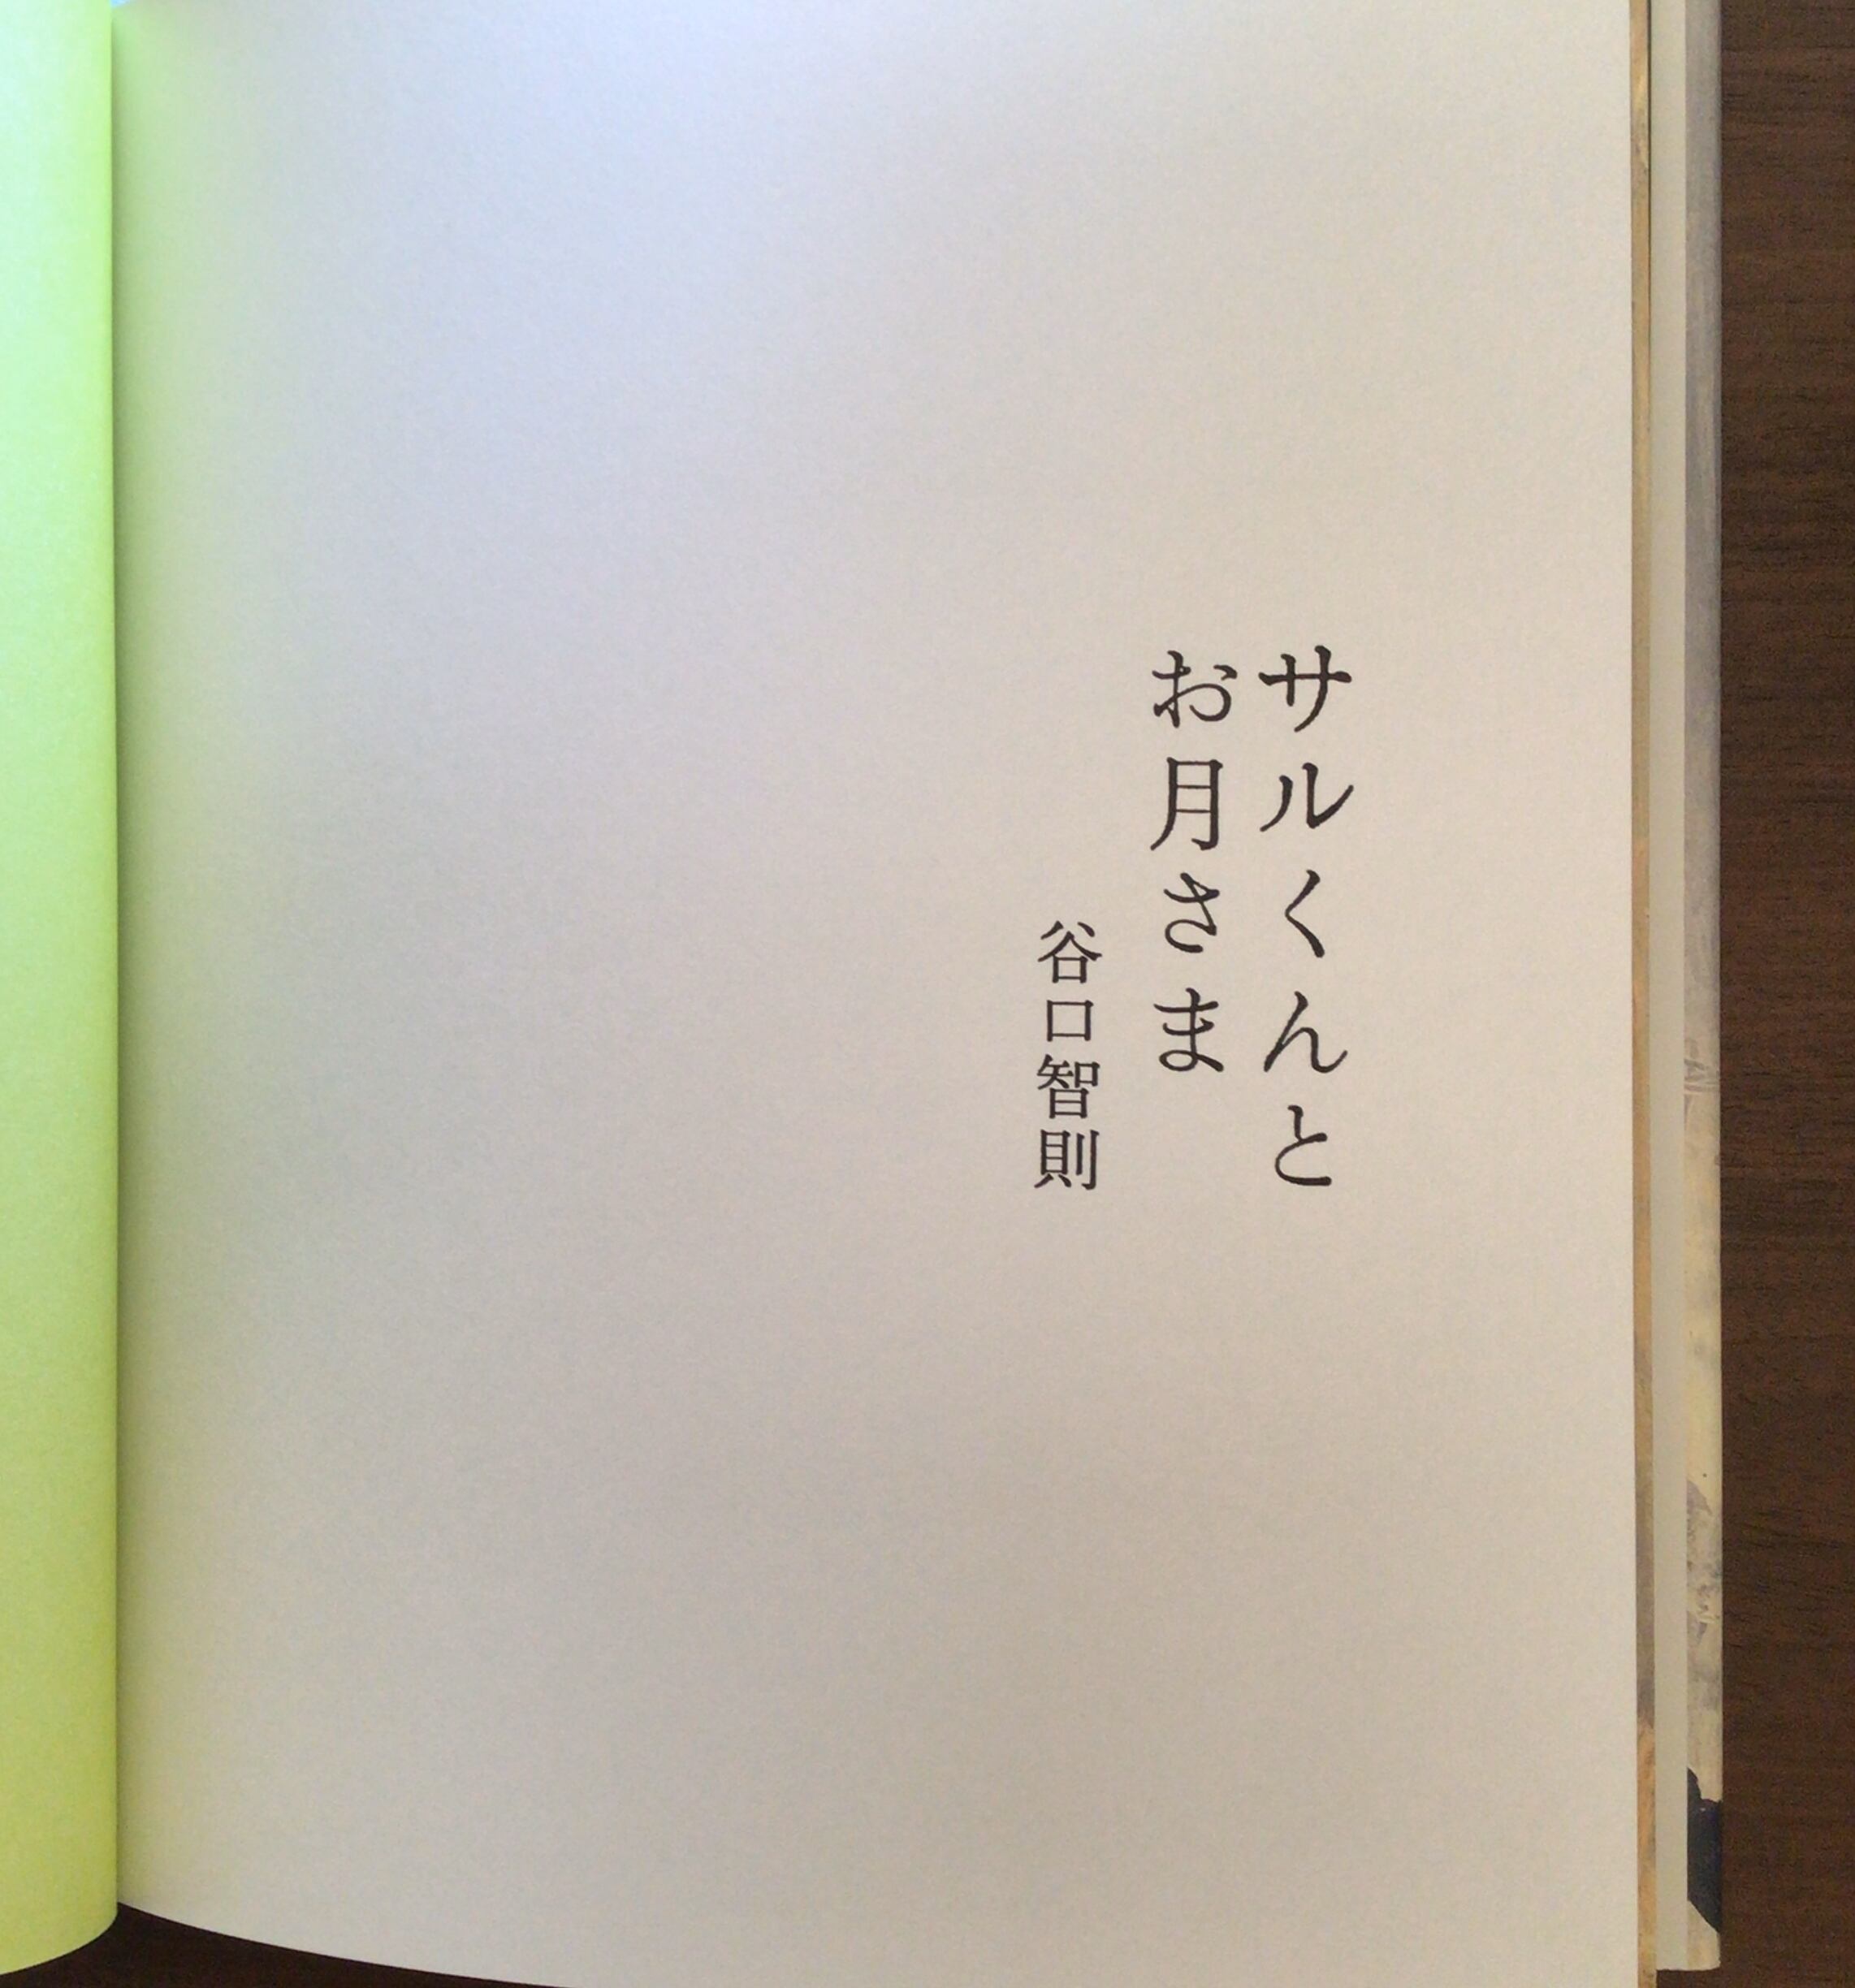 サルくんと
お月さま
谷口智則